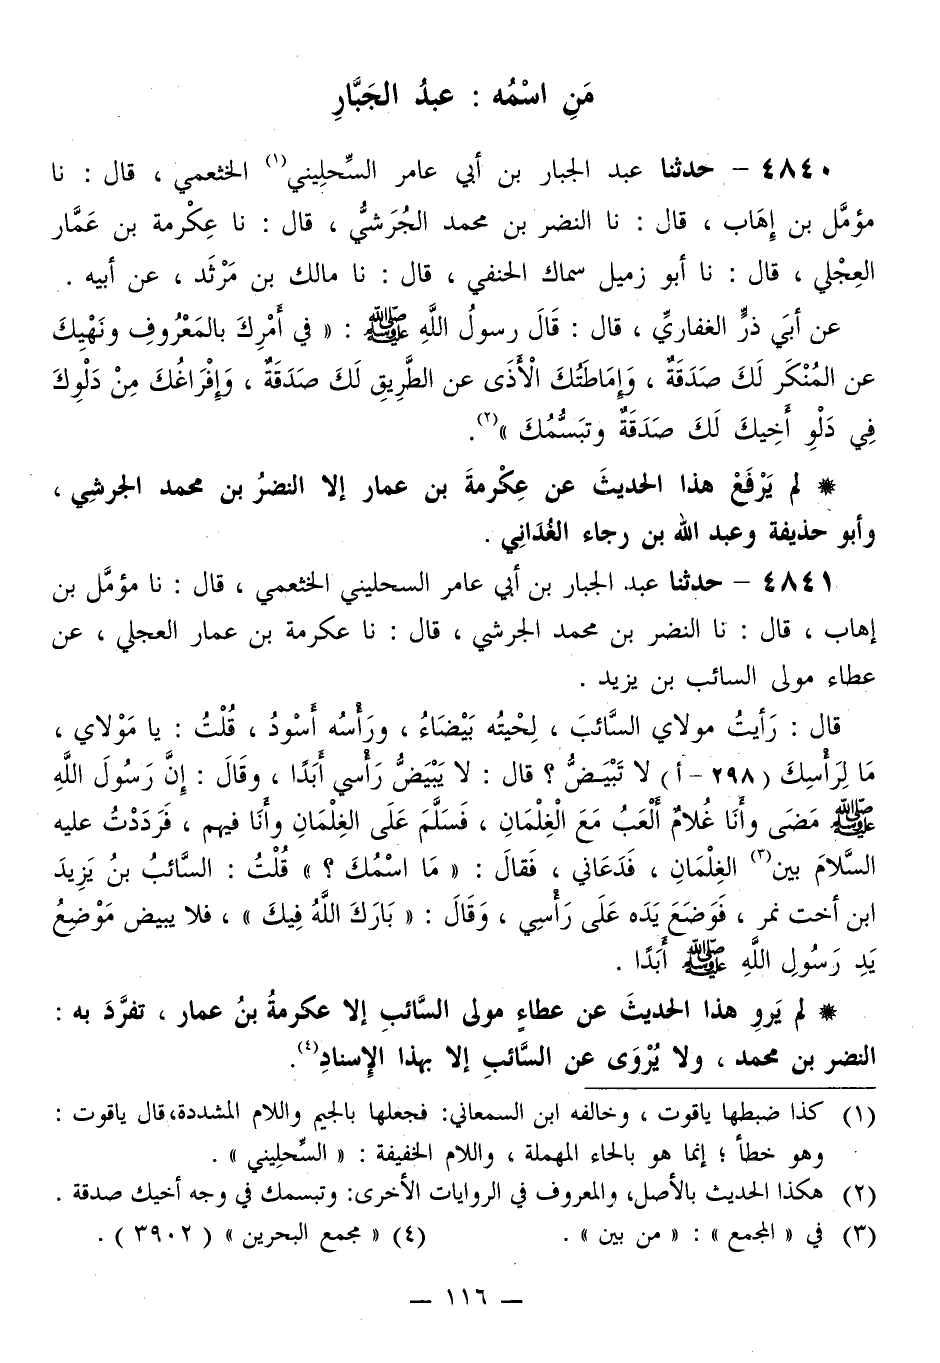 مَنِ اسْمُه : عبدُ الجَبَّارِ
٤٨٤٠ – حدثنا عبد الجبار بن أبي عامر السِّحلِيني(١) الخثعمي ، قال : نا
مؤمَّل بن إهَاب ، قال : نا النضر بن محمد الجُرَشيُّ ، قال : نا عِكْرمة بن عَمَّار
العِجْلي ، قال : نا أبو زميل سماك الحنفي ، قال : نا مالك بن مَرْثَد ، عن أبيه .
عن أبَي ذرٍّ الغفاريِّ ، قال : قَالَ رسولُ اللَّهِ ﷺ : « في أَمْرِكَ بالمَعْرُوفِ ونَهْيِكَ
عن المُنْكَر لَكَ صَدَقَةٌ ، وَإِمَاطَتُكَ الْأَذَى عن الطَّرِيقِ لَكَ صَدَقَةٌ ، وَإِفْراغُكَ مِنْ دَلْوِكَ
فِي دَلْوِ أَخِيكَ لَكَ صَدَقَةٌ وتبَسُّمُكَ »(٢).
* لم يَرْفَعْ هذا الحديثَ عن عِكْرمةَ بن عمار إلا النضرُ بن محمد الجرشي ،
وأبو حذيفة وعبد الله بن رجاء الغُدَانِي .
٤٨٤١ – حدثنا عبد الجبار بن أبي عامر السحليني الخثعمي ، قال : نا مؤمَّل بن
إهاب ، قال : نا النضر بن محمد الجرشي ، قال : نا عكرمة بن عمار العجلي ، عن
عطاء مولى السائب بن يزيد .
قال : رَأيتُ مولاي السَّائبَ ، لِحْيتُه بَيْضَاءُ ، ورَأْسُه أَسْودُ ، قُلْتُ : يا مَوْلاي ،
مَا لِرَأْسِكَ (٢٩٨ – أ) لا تَبْيَضُّ ؟ قال : لا يَبْيَضُّ رَأْسي أَبَدًا ، وقَالَ : إنَّ رَسُولَ اللَّهِ
ﷺ مَضَى وأَنَا غُلامٌ أَلْعَبُ مَعَ الْغِلْمَانِ ، فَسَلَّمَ عَلَى الغِلْمَانِ وأَنَا فيهم ، فَرَدَدْتُ عليه
السَّلامَ بين(٣) الغِلْمَانِ ، فَدَعَاني ، فَقالَ : « مَا اسْمُكَ ؟ » قُلْتُ : السَّائبُ بنُ يَزِيدَ
ابن أخت نمر ، فَوَضَعَ يَدَه عَلَى رَأْسِي ، وَقَالَ : « بَارَكَ اللَّهُ فِيكَ » ، فلا يبيض مَوْضِعُ
يَدِ رَسُولِ اللَّهِ ﷺ أَبَدًا .
* لم يَروِ هذا الحديثَ عن عطاءٍ مولى السَّائبِ إلا عكرمةُ بنُ عمار ، تفرَّدَ به :
النضر بن محمد ، ولا يُرْوَى عن السَّائبِ إلا بهذا الإسنادِ(٤).
(١) كذا ضبطها ياقوت ، وخالفه ابن السمعاني: فجعلها بالجيم واللام المشددة،قال ياقوت :
وهو خطأ ؛ إنما هو بالحاء المهملة ، واللام الخفيفة : « السِّحلِيني » .
(٢) هكذا الحديث بالأصل، والمعروف في الروايات الأخرى: وتبسمك في وجه أخيك صدقة .
(٣) في « المجمع » : « من بين » . (٤) « مجمع البحرين » ( ٣٩٠٢ ) .
— ١١٦ —